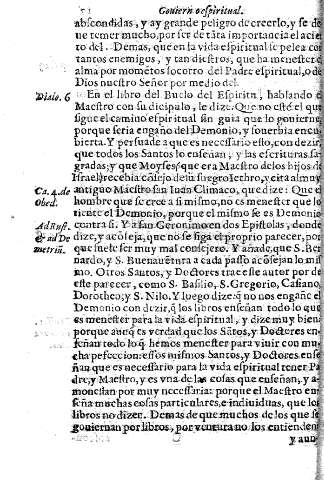 Gouierno espiritual.
abscondidas, y ay grande peligro de creerlo, y se de
ue temer mucho, por ser de tāta importancia el acier
to del. Demas, que en la vida espiritual se pelea con
tantos enemigos, y tan diestros, que ha menester el
alma por momētos socorro del Padre espiritual, o de
Dios nuestro Señor por medio del.
Dialo. 6 En el libro del Buelo del Espiritu, hablando el
Maestro con su dicipulo, le dize: Que no esté el que
sigue el camino espiritual sin guia que lo gouierne,
porque seria engaño del Demonio, y souerbia encu
bierta. Y persuade a que es necessario esto, con dezir,
que todos los Santos lo enseñan, y las escrituras sa-
gradas; y que Moyses que era Maestro de los hijos de
Israel, recebia cōsejo de sū suegro Iethro, y cita al muy
Ca. 4. de antiguo Maestro san Iuan Climaco, que dize: Que el
Obed. hombre que se cree a si mismo, no es menester que lo
tiente el Demonio, porque el mismo se es Demonio
Ad Rust contra si. Y a san Geronimo en dos Epistolas, donde
& ad De dize, y acōseja, que no se siga el proprio parecer, por
metriā. que suele ser muy mal consejero. Y añade, que S. Ber
nardo, y S. Buenauētura a cada passo acōsejan lo mis
mo. Otros Santos, y Doctores trae este autor por de
este parecer, como S. Basilio, S. Gregorio, Casiano,
Dorotheo, y S. Nilo. Y luego dize: q̄ no nos engañe el
Demonio con dezir, q̄ los libros enseñan todo lo que
es menester para la vida espiritual, y dize muy bien,
porque aunq̄ es verdad que los Sātos, y Doctores en
señan todo lo q̄ hemos menester para viuir con mu-
cha perfeccion: essos mismos Santos, y Doctores ense
ñan que es necessario para la vida espiritual tener Pa
dre, y Maestro, y es vna de las cosas que enseñan, y a-
monestan por muy necessaria: porque el Maestro en-
seña muchas cosas particulares, e indiuiduas, que los
libros no dizen. Demas de que muchos de los que se
gouiernan por libros, por ventura no los entienden,
y aun